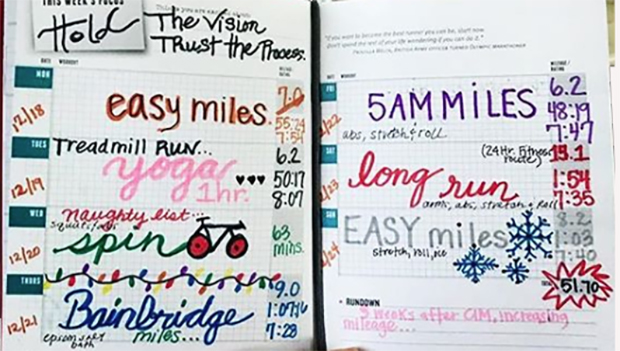 THIS WEEK'S FOCUS
Hold The Vision
Trust the Process.
DATE WORKOUT
MON
12/18
easy miles.
7.0
55:24
TUES
12/19
Treadmill Run...
yoga
1hr.
♥♥♥
6.2
50:17
8:07
WED
12/20
naughty list...
spin
63
mins.
THURS
12/21
Bainbridge
miles...
epsom salt
bath
9.0
7:28
"If you want to become the best runner you can be, start now.
Don't spend the rest of your life wondering if you can do it."
DATE WORKOUT
FRI
5AM MILES
abs, stretch & roll
6.2
48:19
7:47
SAT
(24 Hr. Fitness
route)
long run
arms, abs, stretch & roll
13.1
1:54
7:35
SUN
EASY miles
stretch, roll, ice
8.2
1:03
7:40
51.70
RUNDOWN
weeks after CIM, increasing
mileage...